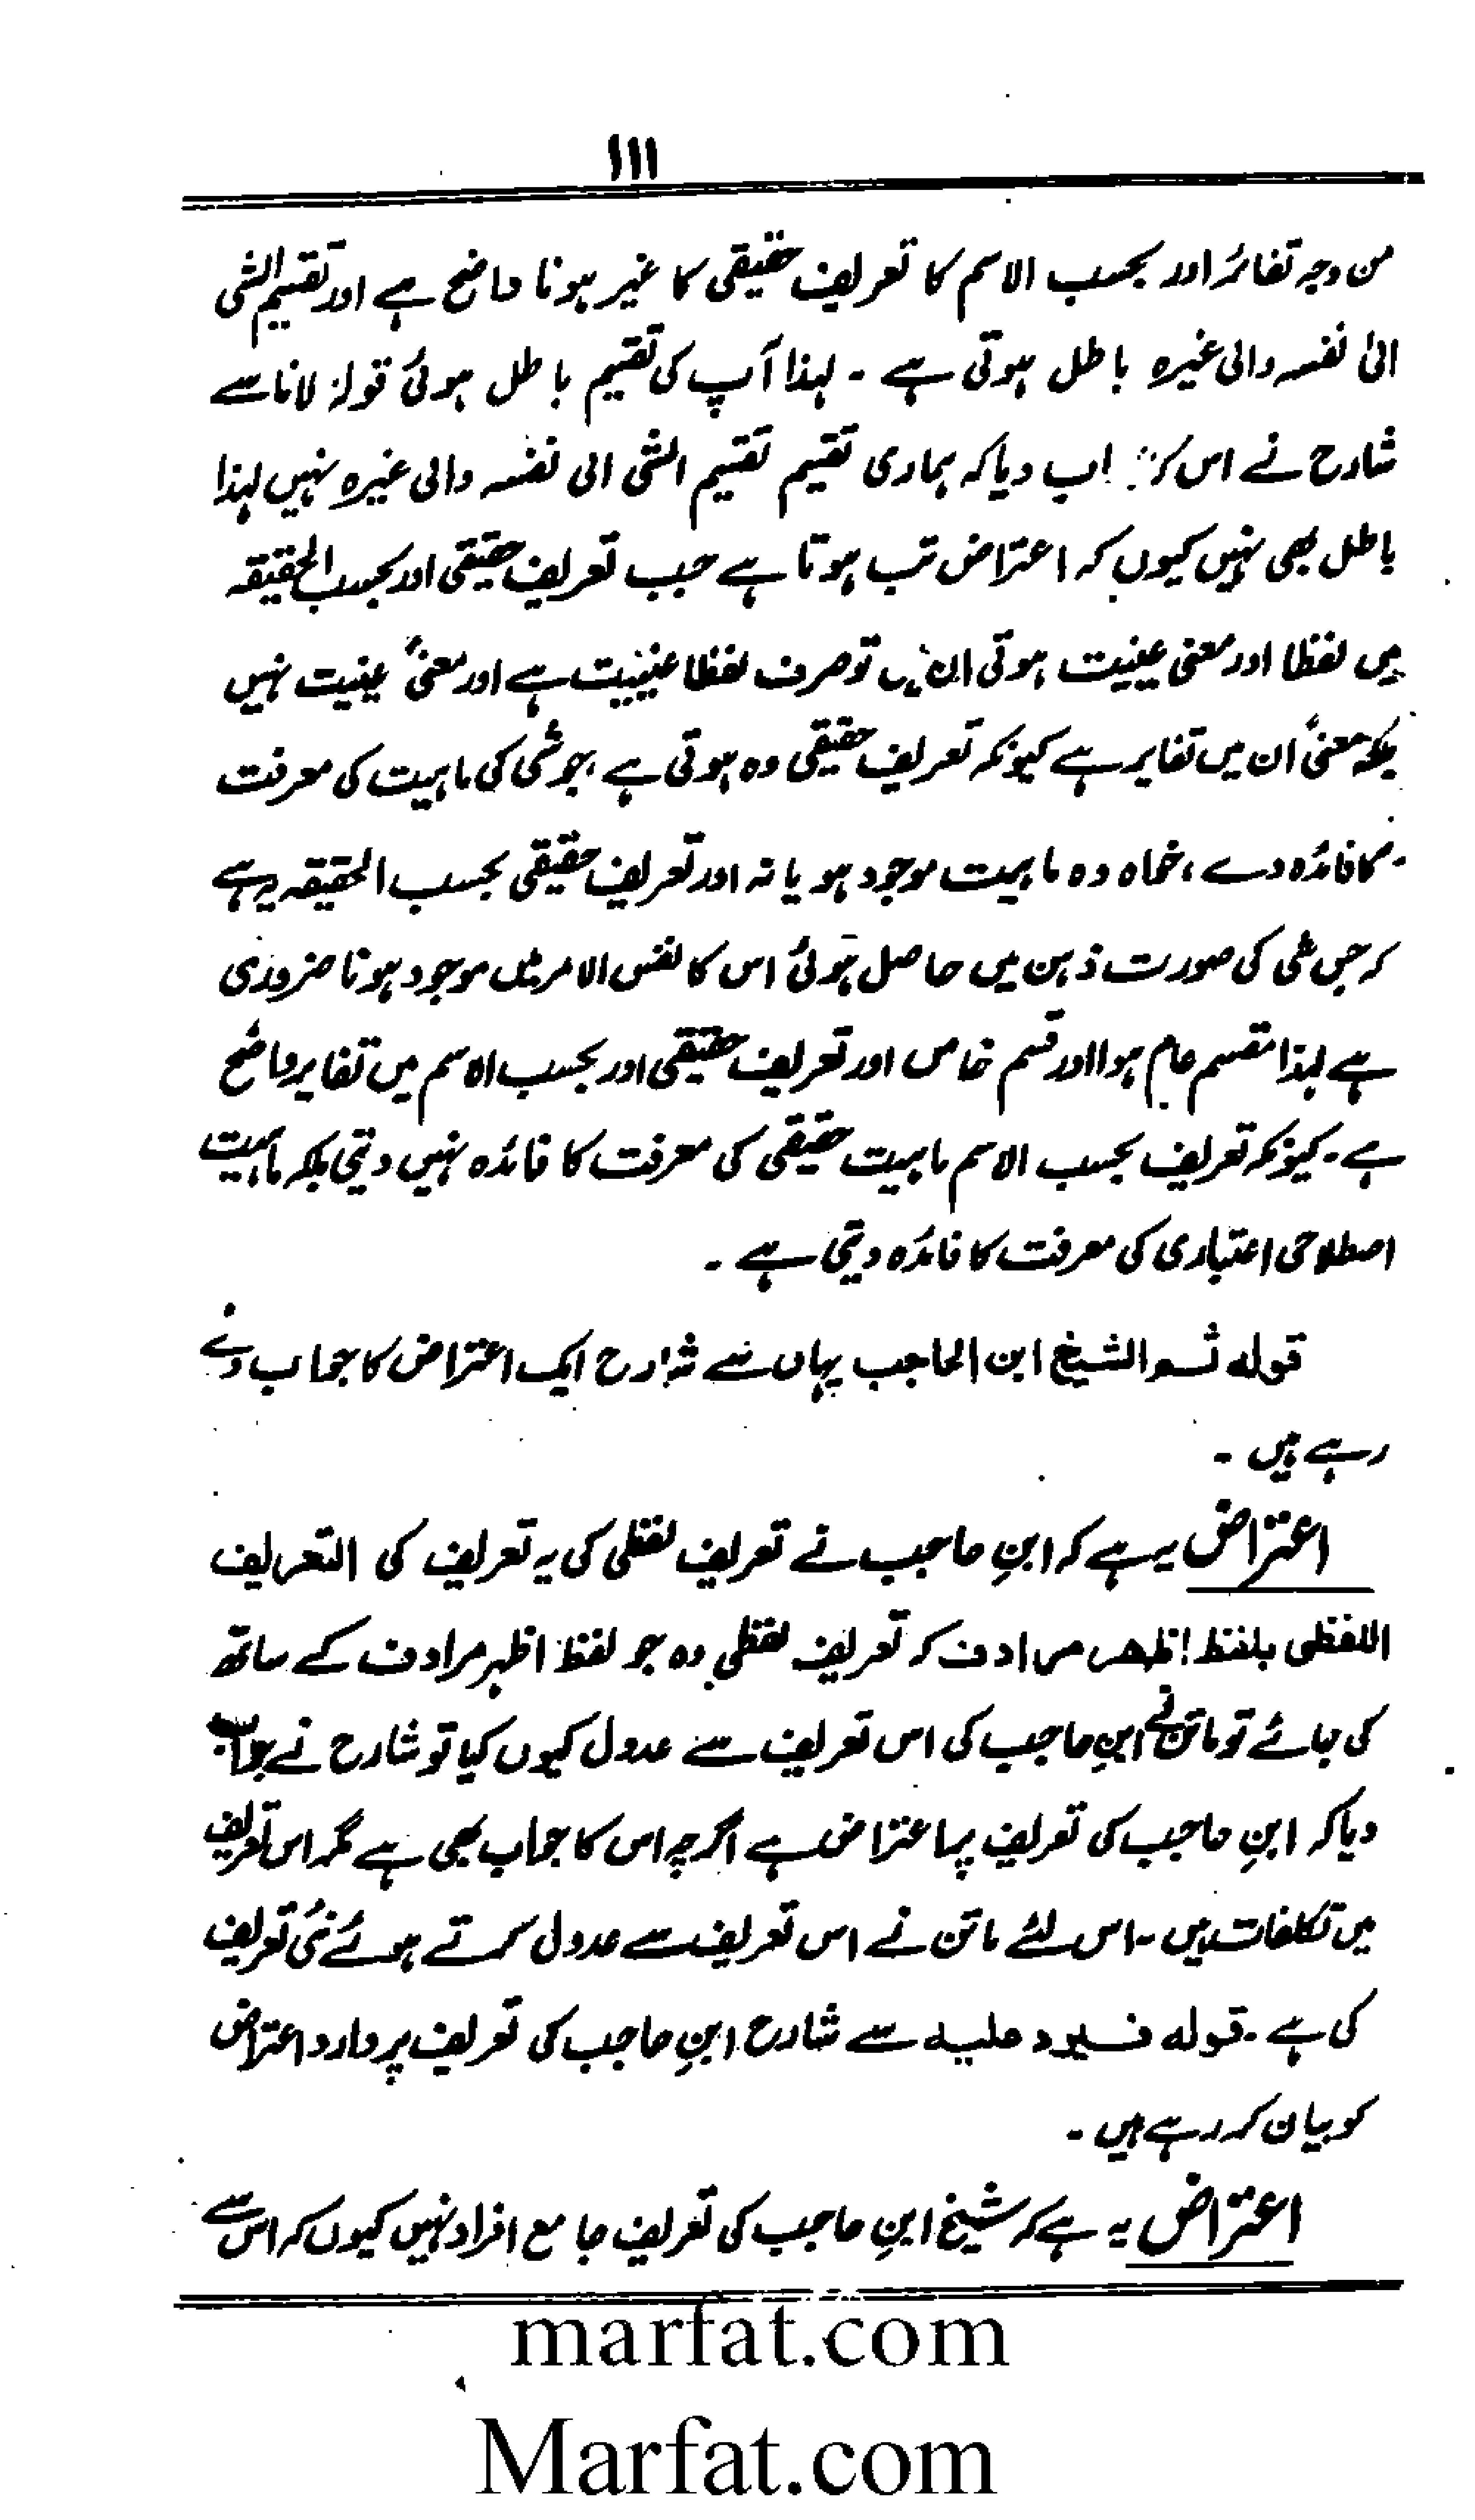 ۱۱۱
من وجہ تغائر اور بحسب الاسم کا تعریف حقیقی کا غیر ہونا واضح ہے اور تقسیم الشی
الی نفسہ والی غیرہ باطل ہوتی ہے ۔ لہذا آپ کی تقیم باطل ہوئی قولہ لانا سے
شارح نے اس کا جواب دیا کہ ہماری تقیم تقیم الشی الی نفسہ والی غیرہ نہیں لہذا
باطل بھی نہیں کیوں کہ اعتراض تب ہوتا ہے جب تعریف حقیقی اور بحسب الحقیقہ
میں لفظا اور معنی عینیت ہوتی ان میں تو صرف لفظا عینیت ہے اور معنیً عینیت نہیں
بلکہ معنیً ان میں تغایر ہے کیونکہ تعریف حقیقی وہ ہوتی ہے ، جو شی کی ماہیت کی معرفت
کا فائدہ دے ، خواہ وہ ماہیت موجود ہو یا نہ اور تعریف حقیقی بحسب الحقیقہ یہ ہے
کہ جس شی کی صورت ذہن میں حاصل ہوئی اس کا نفس الامر میں موجود ہونا ضروری
ہے لہذا مقسم عام ہوا اور قسم خاص اور تعریف حقیقی اور بحسب الاسم میں تغایر واضح
ہے ۔ کیونکہ تعریف بحسب الاسم ماہیت حقیقی کی معرفت کا فائدہ نہیں دیتی بلکہ ماہیت
اصطلاحی اعتباری کی معرفت کا فائدہ دیتی ہے ۔
قوله ثم الشیخ ابن الحاجب یہاں سے شارح ایک اعتراض کا جواب دے
رہے ہیں ۔
اعتراض یہ ہے کہ ابنِ حاجب نے تعریف لفظی کی یہ تعریف کی التعریف
اللفظی بلفظ اظهر مرادف کہ تعریف لفظی وہ جو لفظ اظہر مرادف کے ساتھ
کی جائے تو ماتن نے ابنِ حاجب کی اس تعریف سے عدول کیوں کیا تو شارح نے جواب
دیا کہ ابنِ حاجب کی تعریف پر اعتراض ہے اگرچہ اس کا جواب بھی ہے مگر اس تعریف
میں تکلفات ہیں ۔ اس لئے ماتن نے اس تعریف سے عدول کرتے ہوئے نئی تعریف
کی ہے ۔ قوله فیرد علیه سے شارح ابنِ حاجب کی تعریف پر وارد اعتراض
کو بیان کر رہے ہیں ۔
اعتراض یہ ہے کہ شیخ ابنِ حاجب کی تعریف جامع افراد نہیں کیوں کہ اس سے
marfat.com
Marfat.com